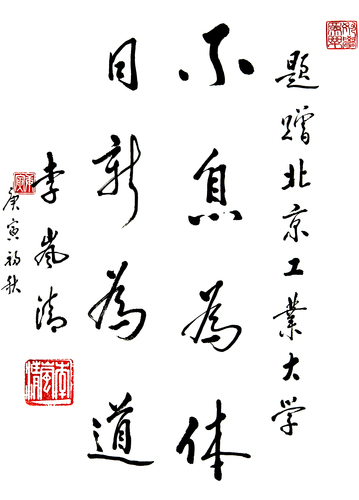 题赠北京工业大学
不息为体
日新为道
李岚清
庚寅初秋